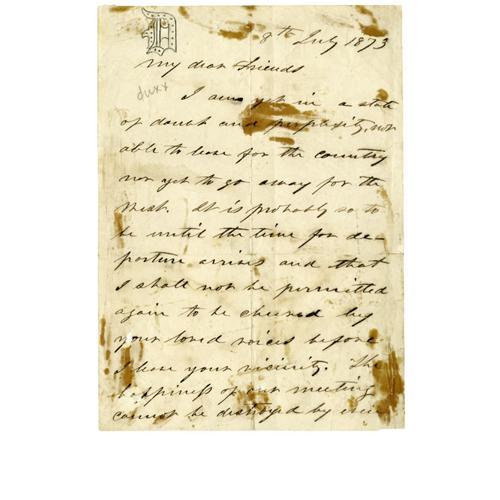 D
8th July 1873
My dear Friends
I am yet in a state
of doubt and perplexity, not
able to leave for the country
nor yet to go away for the
West. It is probably so to
be until the time for de-
parture arrives and that
I shall not be permitted
again to be cheered by
your loved voices before
I leave your vicinity. The
happiness of our meeting
cannot be destroyed by